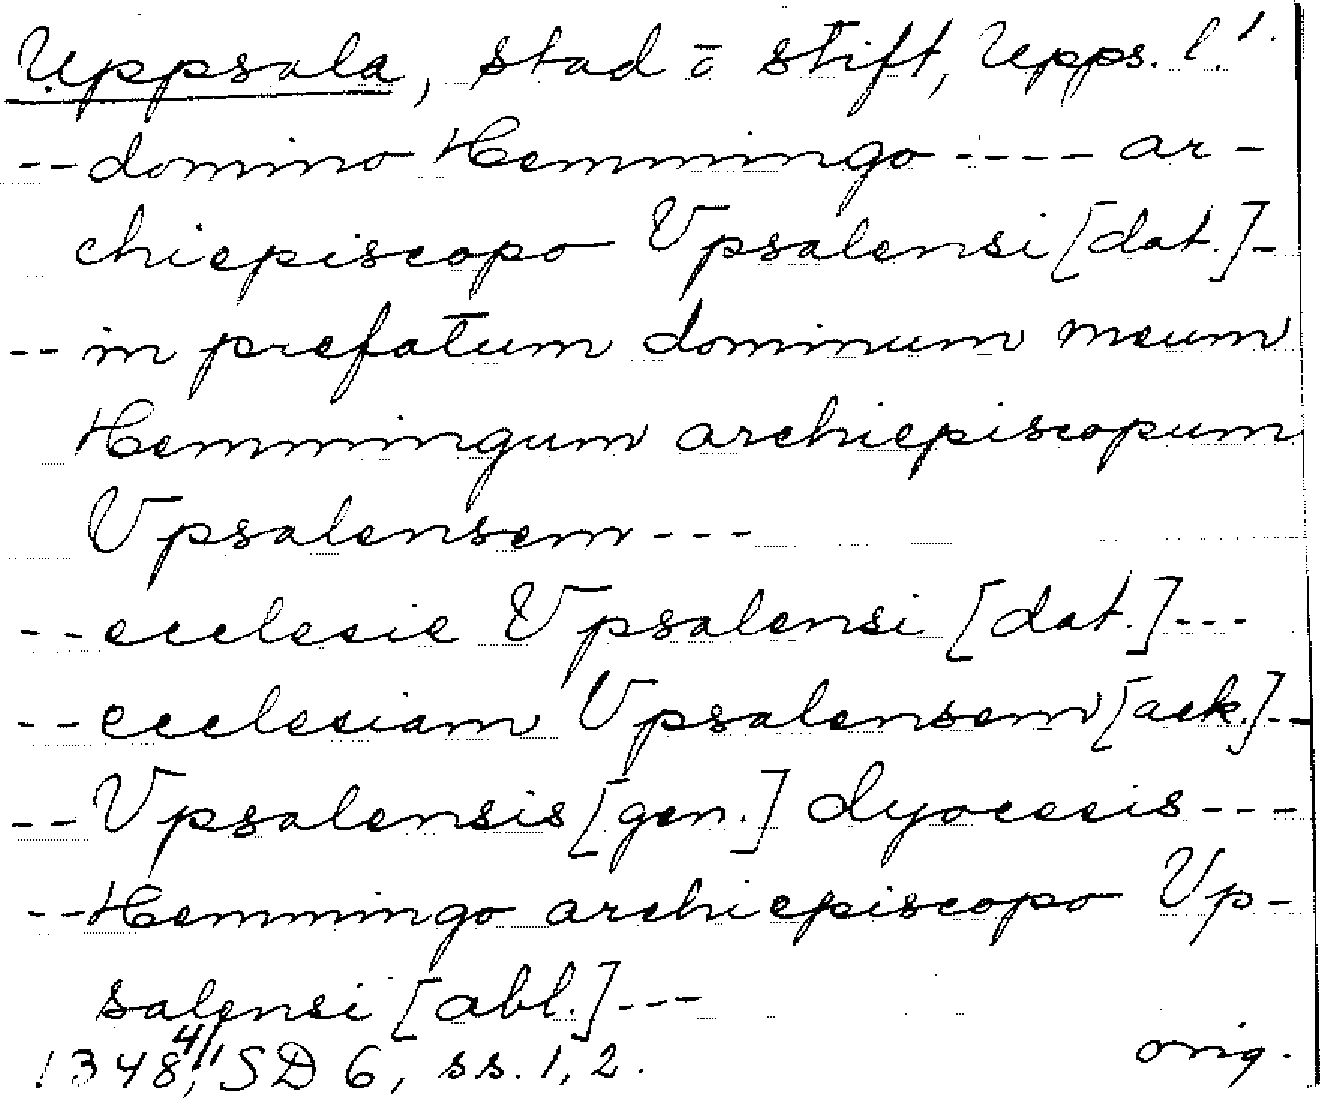 Uppsala, stad o stift, Upps. l.
--domino Hemmingo ---- ar-
chiepiscopo Vpsalensi [dat.]-
-- in prefatum dominum meum
Hemmingum archiepiscopum
Vpsalensem ---
--ecclesie Vpsalensi [dat.]---
--ecclesiam Vpsalensem [ack.]--
--Vpsalensis [gen.] dyocesis---
--Hemmingo archiepiscopo Vp-
salensi [abl.]---
1348 4/1, SD 6, ss. 1, 2. orig.